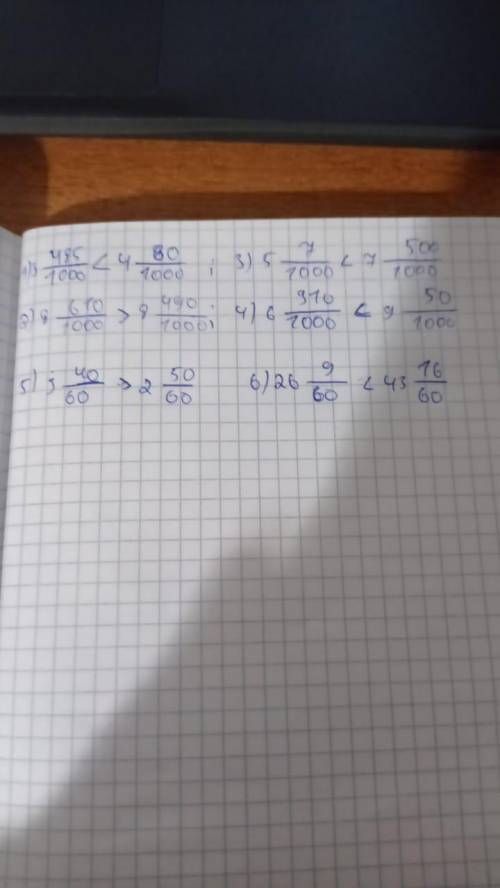 1) 3 485/1000 < 4 80/1000 ; 3) 5 7/1000 < 7 500/1000
2) 8 610/1000 > 8 490/1000 ; 4) 6 910/1000 < 9 50/1000
5) 3 40/60 > 2 50/60 6) 26 9/60 < 43 16/60